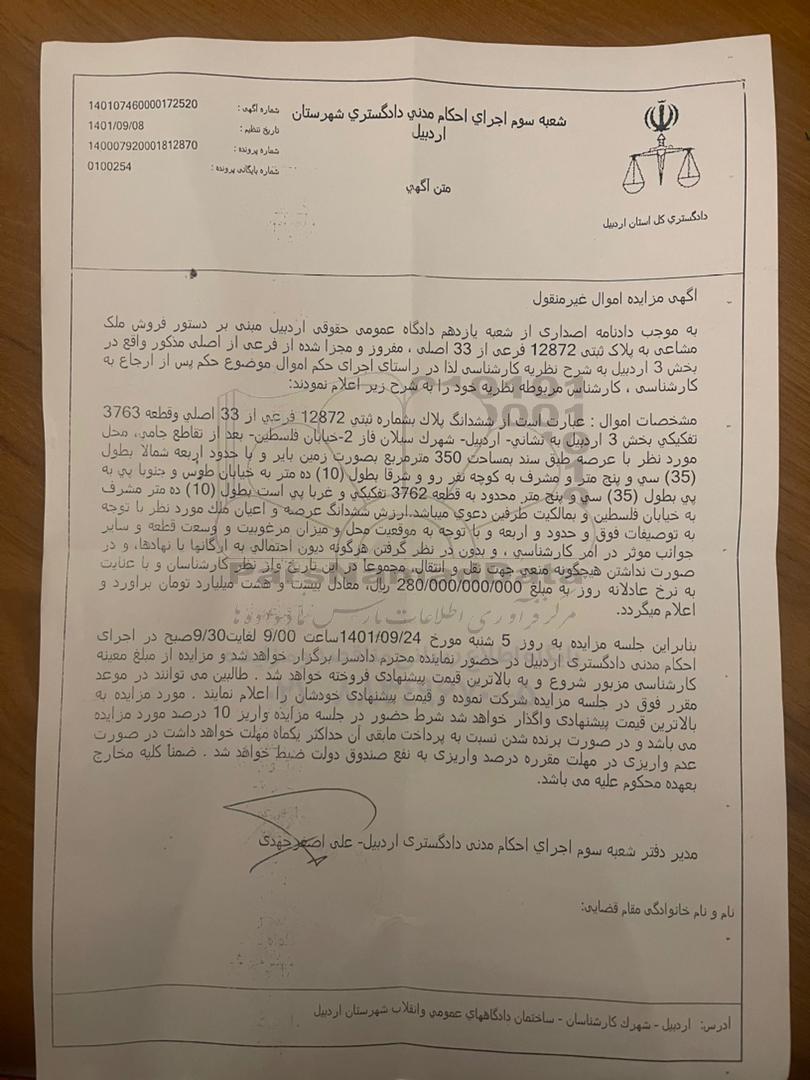 شعبه سوم اجراي احکام مدني دادگستري شهرستان
اردبيل
متن آگهي
شماره آگهي : 140107460000172520
تاريخ تنظيم : 1401/09/08
شماره پرونده : 140007920001812870
شماره بايگاني پرونده : 0100254
دادگستري کل استان اردبيل
آگهی مزایده اموال غیرمنقول
به موجب دادنامه اصداری از شعبه یازدهم دادگاه عمومی حقوقی اردبیل مبنی بر دستور فروش ملک
مشاعی به پلاک ثبتی 12872 فرعی از 33 اصلی ، مفروز و مجزا شده از فرعی از اصلی مذکور واقع در
بخش 3 اردبیل به شرح نظریه کارشناسی لذا در راستای اجرای حکم اموال موضوع حکم پس از ارجاع به
کارشناسی ، کارشناس مربوطه نظریه خود را به شرح زیر اعلام نمودند:
مشخصات اموال : عبارت است از ششدانگ پلاك بشماره ثبتي 12872 فرعي از 33 اصلي وقطعه 3763
تفکيکي بخش 3 اردبيل به نشاني- اردبيل- شهرك سبلان فاز 2-خيابان فلسطين- بعد از تقاطع جامي، محل
مورد نظر با عرصه طبق سند بمساحت 350 مترمربع بصورت زمين باير و با حدود اربعه شمالا بطول
(35) سي و پنج متر و مشرف به کوچه نفر رو و شرقا بطول (10) ده متر به خيابان طوس و جنوبا پي به
پي بطول (35) سي و پنج متر محدود به قطعه 3762 تفکيکي و غربا پي است بطول (10) ده متر مشرف
به خيابان فلسطين و بمالکيت طرفين دعوي ميباشد.ارزش ششدانگ عرصه و اعيان ملك مورد نظر با توجه
به توصيفات فوق و حدود و اربعه و با توجه به موقعيت محل و ميزان مرغوبيت و وسعت قطعه و ساير
جوانب موثر در امر کارشناسي ، و بدون در نظر گرفتن هرگونه ديون احتمالي به ارگانها يا نهادها، و در
صورت نداشتن هيچگونه منعي جهت نقل و انتقال، مجموعا در اين تاريخ واز نظر کارشناسان و با عنايت
به نرخ عادلانه روز به مبلغ 280/000/000/000 ريال، معادل بيست و هشت ميليارد تومان براورد و
اعلام ميگردد.
بنابراین جلسه مزایده به روز 5 شنبه مورخ 1401/09/24ساعت 9/00 لغایت9/30صبح در اجرای
احکام مدنی دادگستری اردبیل در حضور نماینده محترم دادسرا برگزار خواهد شد و مزایده از مبلغ معینه
کارشناسی مزبور شروع و به بالاترین قیمت پیشنهادی فروخته خواهد شد . طالبین می توانند در موعد
مقرر فوق در جلسه مزایده شرکت نموده و قیمت پیشنهادی خودشان را اعلام نمایند . مورد مزایده به
بالاترین قیمت پیشنهادی واگذار خواهد شد شرط حضور در جلسه مزایده واریز 10 درصد مورد مزایده
می باشد و در صورت برنده شدن نسبت به پرداخت مابقی آن حداکثر یکماه مهلت خواهد داشت در صورت
عدم واریزی در مهلت مقرره درصد واریزی به نفع صندوق دولت ضبط خواهد شد . ضمنا کلیه مخارج
بعهده محکوم علیه می باشد.
مدیر دفتر شعبه سوم اجراي احکام مدنی دادگستری اردبیل- علی اصغر جهدی
نام و نام خانوادگي مقام قضايي:
آدرس: اردبيل - شهرك کارشناسان - ساختمان دادگاههاي عمومي وانقلاب شهرستان اردبيل